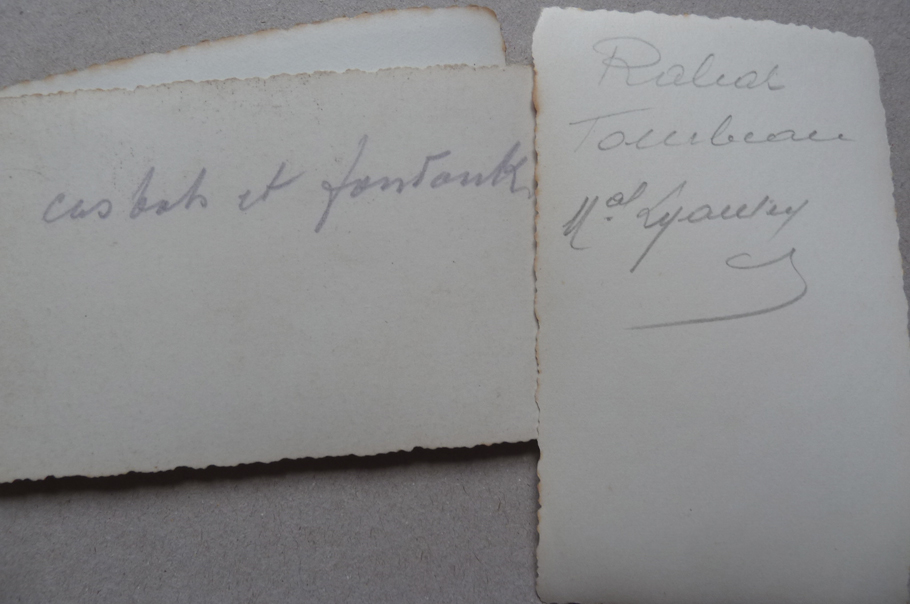 casbah et fondouk
Rabat
Tombeau
Mal Lyautey